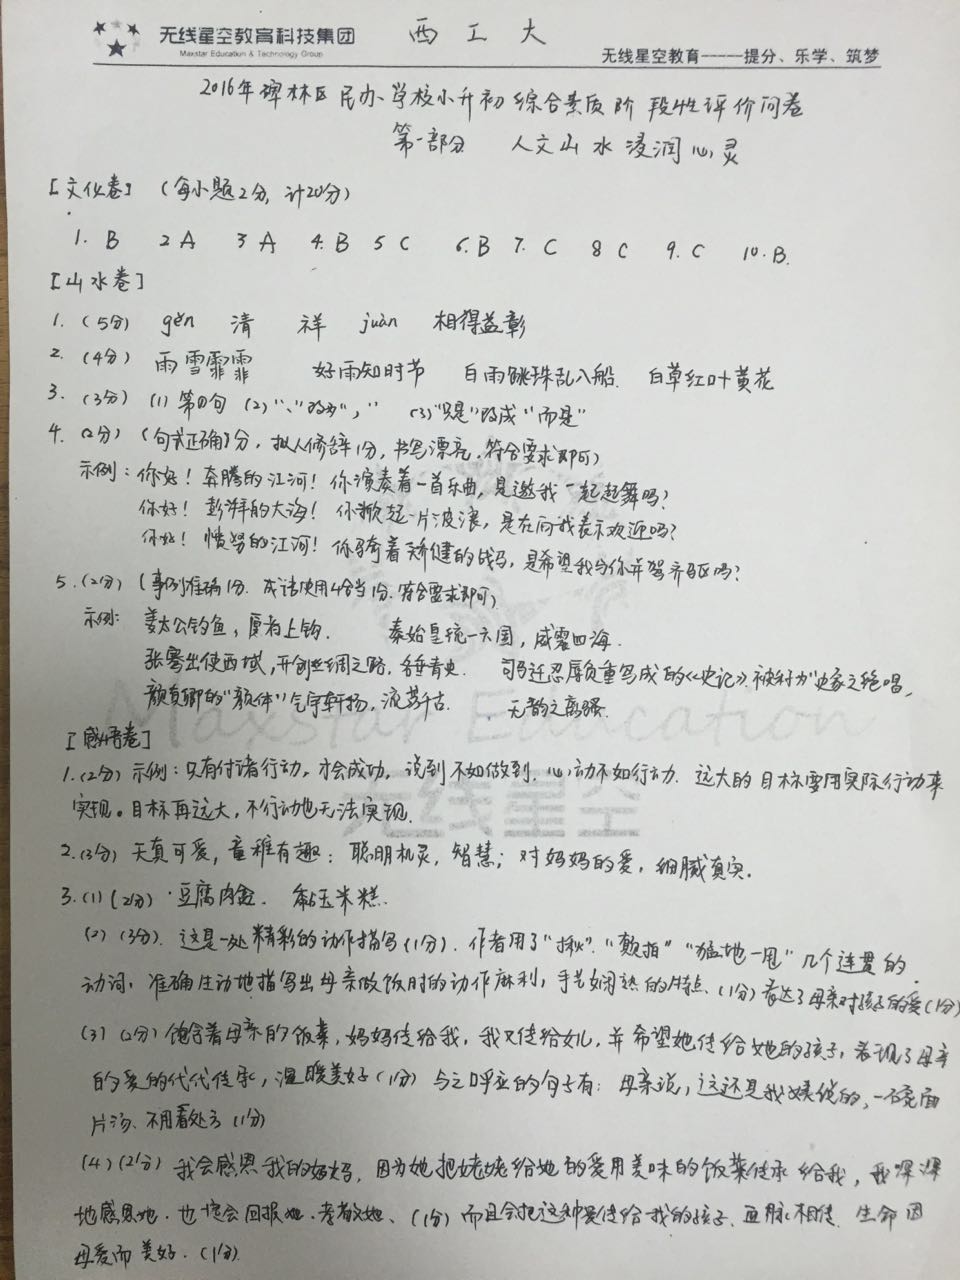 无线星空教育科技集团
Maxstar Education & Technology Group
西工大
无线星空教育-----提分、乐学、筑梦
2016年碑林区民办学校小升初综合素质阶段性评价问卷
第一部分 人文山水浸润心灵
[文化卷] (每小题2分,计20分)
1. B 2 A 3 A 4. B 5 C 6. B 7. C 8 C 9. C 10. B.
[山水卷]
1. (5分) gěn 清 祥 juàn 相得益彰
2. (4分) 雨雪霏霏 好雨知时节 白雨跳珠乱入船. 白草红叶黄花
3. (3分) (1) 第 句 (2) "、"改为"," (3)"只是"改成"而是"
4. (2分) (句式正确1分,拟人修辞1分,书写漂亮.符合要求即可)
示例:你好!奔腾的江河!你演奏着一首乐曲,是邀我一起起舞吗?
你好!澎湃的大海!你掀起一片波浪,是在向我表示欢迎吗?
你好!愤怒的江河!你骑着矫健的战马,是希望我与你并驾齐驱吗?
5. (2分) (事例准确1分.成语使用恰当1分.符合要求即可)
示例: 姜太公钓鱼,愿者上钩. 秦始皇统一六国,威震四海.
张骞出使西域,开创丝绸之路,名垂青史. 司马迁忍辱负重写成的《史记》被称为"史家之绝唱,
颜真卿的"颜体"气宇轩扬,流芳千古. 无韵之离骚.
Maxstar Education
[感悟卷]
1.(2分) 示例:只有付诸行动,才会成功.说到不如做到.心动不如行动. 远大的目标要用实际行动来
实现。目标再远大,不行动也无法实现.
无线星空
2.(3分) 天真可爱,童稚有趣;聪明机灵,智慧;对妈妈的爱,细腻真实.
3.(1)(2分) 豆腐肉盒. 黏玉米糕.
(2) (3分). 这是一处精彩的动作描写(1分).作者用了"揪"."颠拍""猛地一甩"几个连贯的
动词,准确生动地描写出母亲做饭时的动作麻利,手艺娴熟的特点、(1分)表达了母亲对孩子的爱(1分)
(3) (2分) 饱含着母亲的饭菜,妈妈传给我,我又传给女儿,并希望她传给她的孩子,表现了母亲
的爱的代代传承,温暖美好(1分) 与之呼应的句子有: 母亲说,这还是我姨传的,一碗面
片汤、不用看处方(1分)
(4) (2分) 我会感恩我的妈妈,因为她把姥姥给她的爱用美味的饭菜传承给我,我深深
地感恩她.也 会回报她.孝敬她、(1分) 而且会把这种爱传给我的孩子.血脉相传.生命因
母爱而美好.(1分)